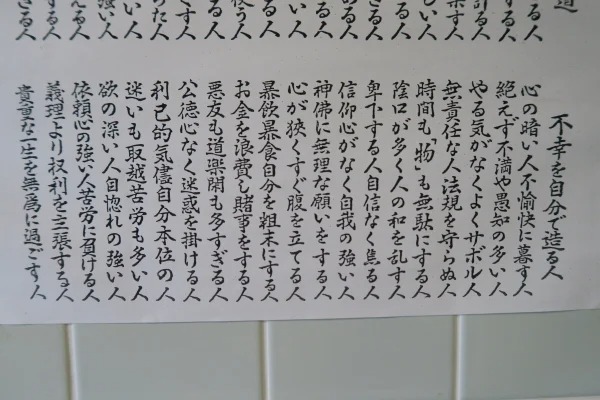 道
る人
する人
計る人
す人
しい人
る人
きる人
ある人
いる人
る人
る人
使う人
る人
くす人
った人
い人
強い人
える人
する人
きる人
不幸を自分で造る人
心の暗い人不愉快に暮す人
絶えず不満や愚知の多い人
やる気がなくよくサボル人
無責任な人法規を守らぬ人
時間も「物」も無駄にする人
陰口が多く人の和を乱す人
卑下する人自信なく焦る人
信仰心がなく自我の強い人
神佛に無理な願いをする人
心が狭くすぐ腹を立てる人
暴飲暴食自分を粗末にする人
お金を浪費し賭事をする人
悪友も道楽閑も多すぎる人
公徳心なく迷惑を掛ける人
利己的気儘自分本位の人
迷いも取越苦労も多い人
欲の深い人自惚れの強い人
依頼心の強い人苦労に負ける人
義理より权利を主張する人
貴重な一生を無爲に過ごす人